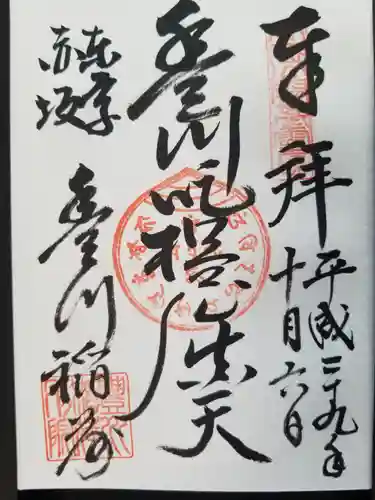 奉拝
平成二十九年
十月六日
豊川吒枳尼真天
東京
赤坂
豊川稲荷